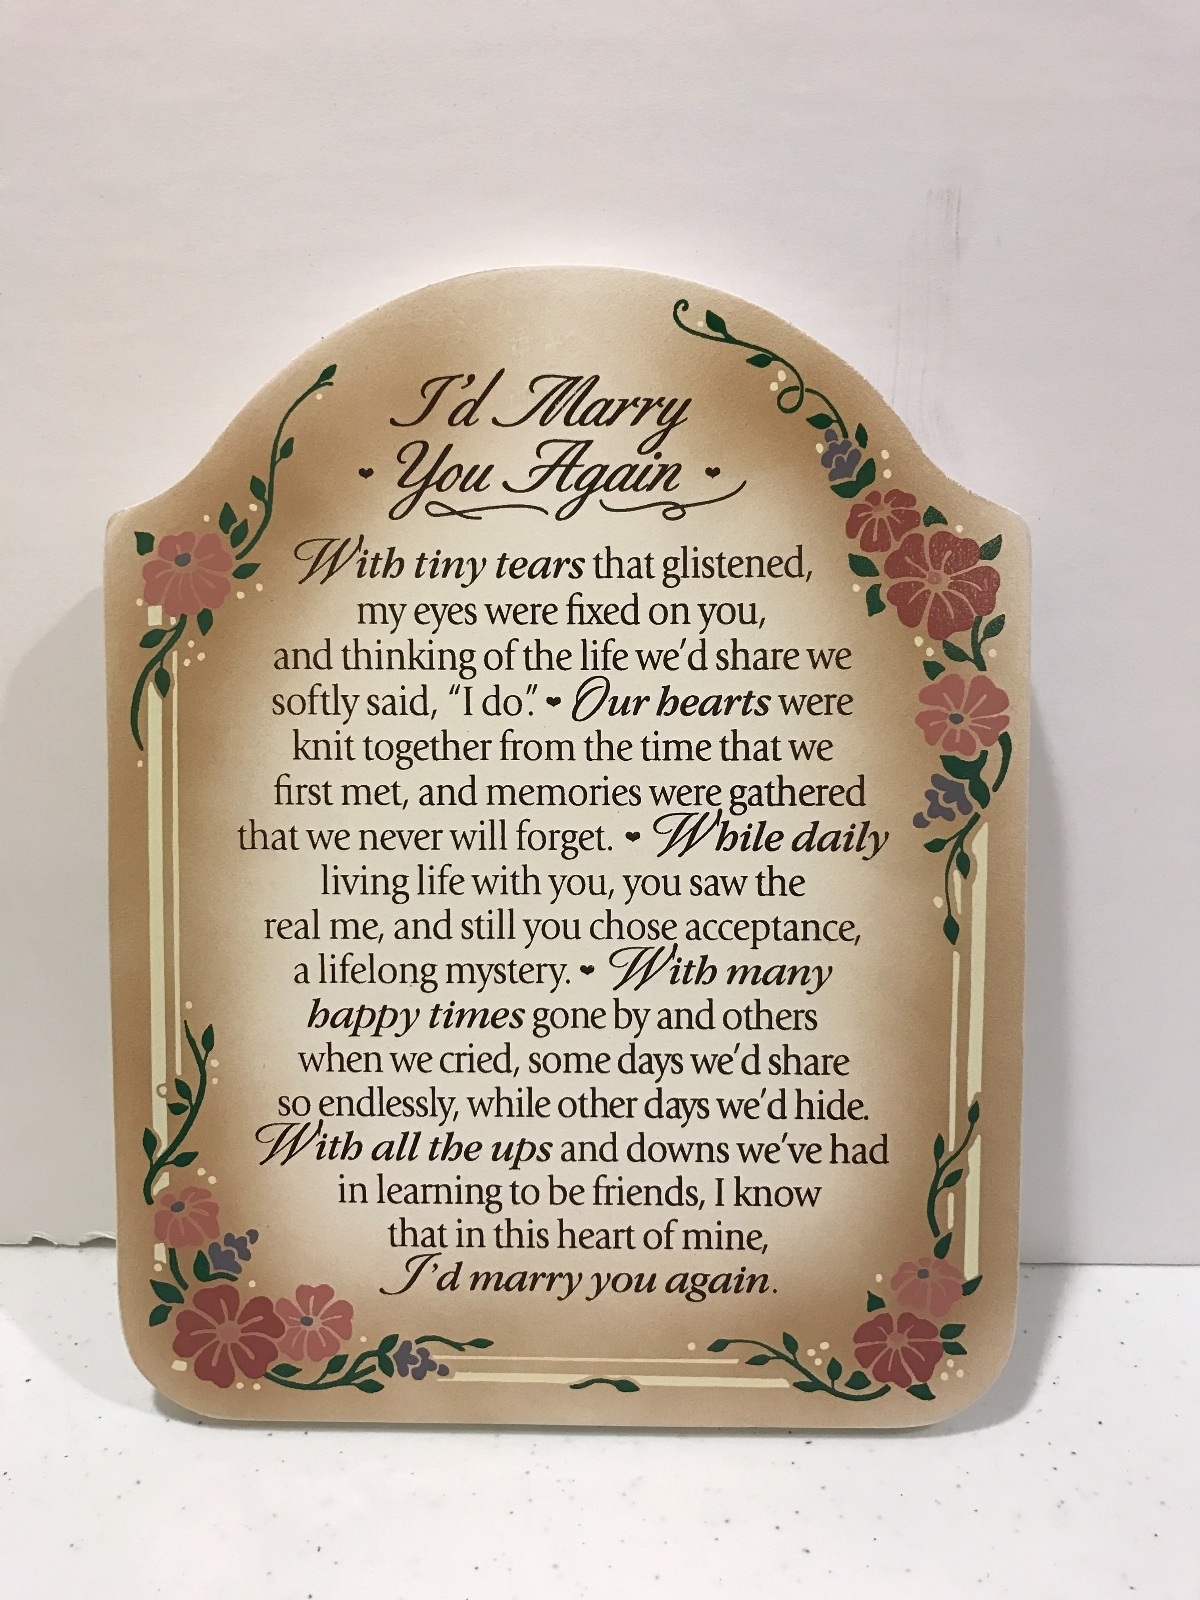 I'd Marry
♥ You Again ♥
With tiny tears that glistened,
my eyes were fixed on you,
and thinking of the life we'd share we
softly said, “I do.” ♥ Our hearts were
knit together from the time that we
first met, and memories were gathered
that we never will forget. ♥ While daily
living life with you, you saw the
real me, and still you chose acceptance,
a lifelong mystery. ♥ With many
happy times gone by and others
when we cried, some days we'd share
so endlessly, while other days we'd hide.
With all the ups and downs we've had
in learning to be friends, I know
that in this heart of mine,
I'd marry you again.